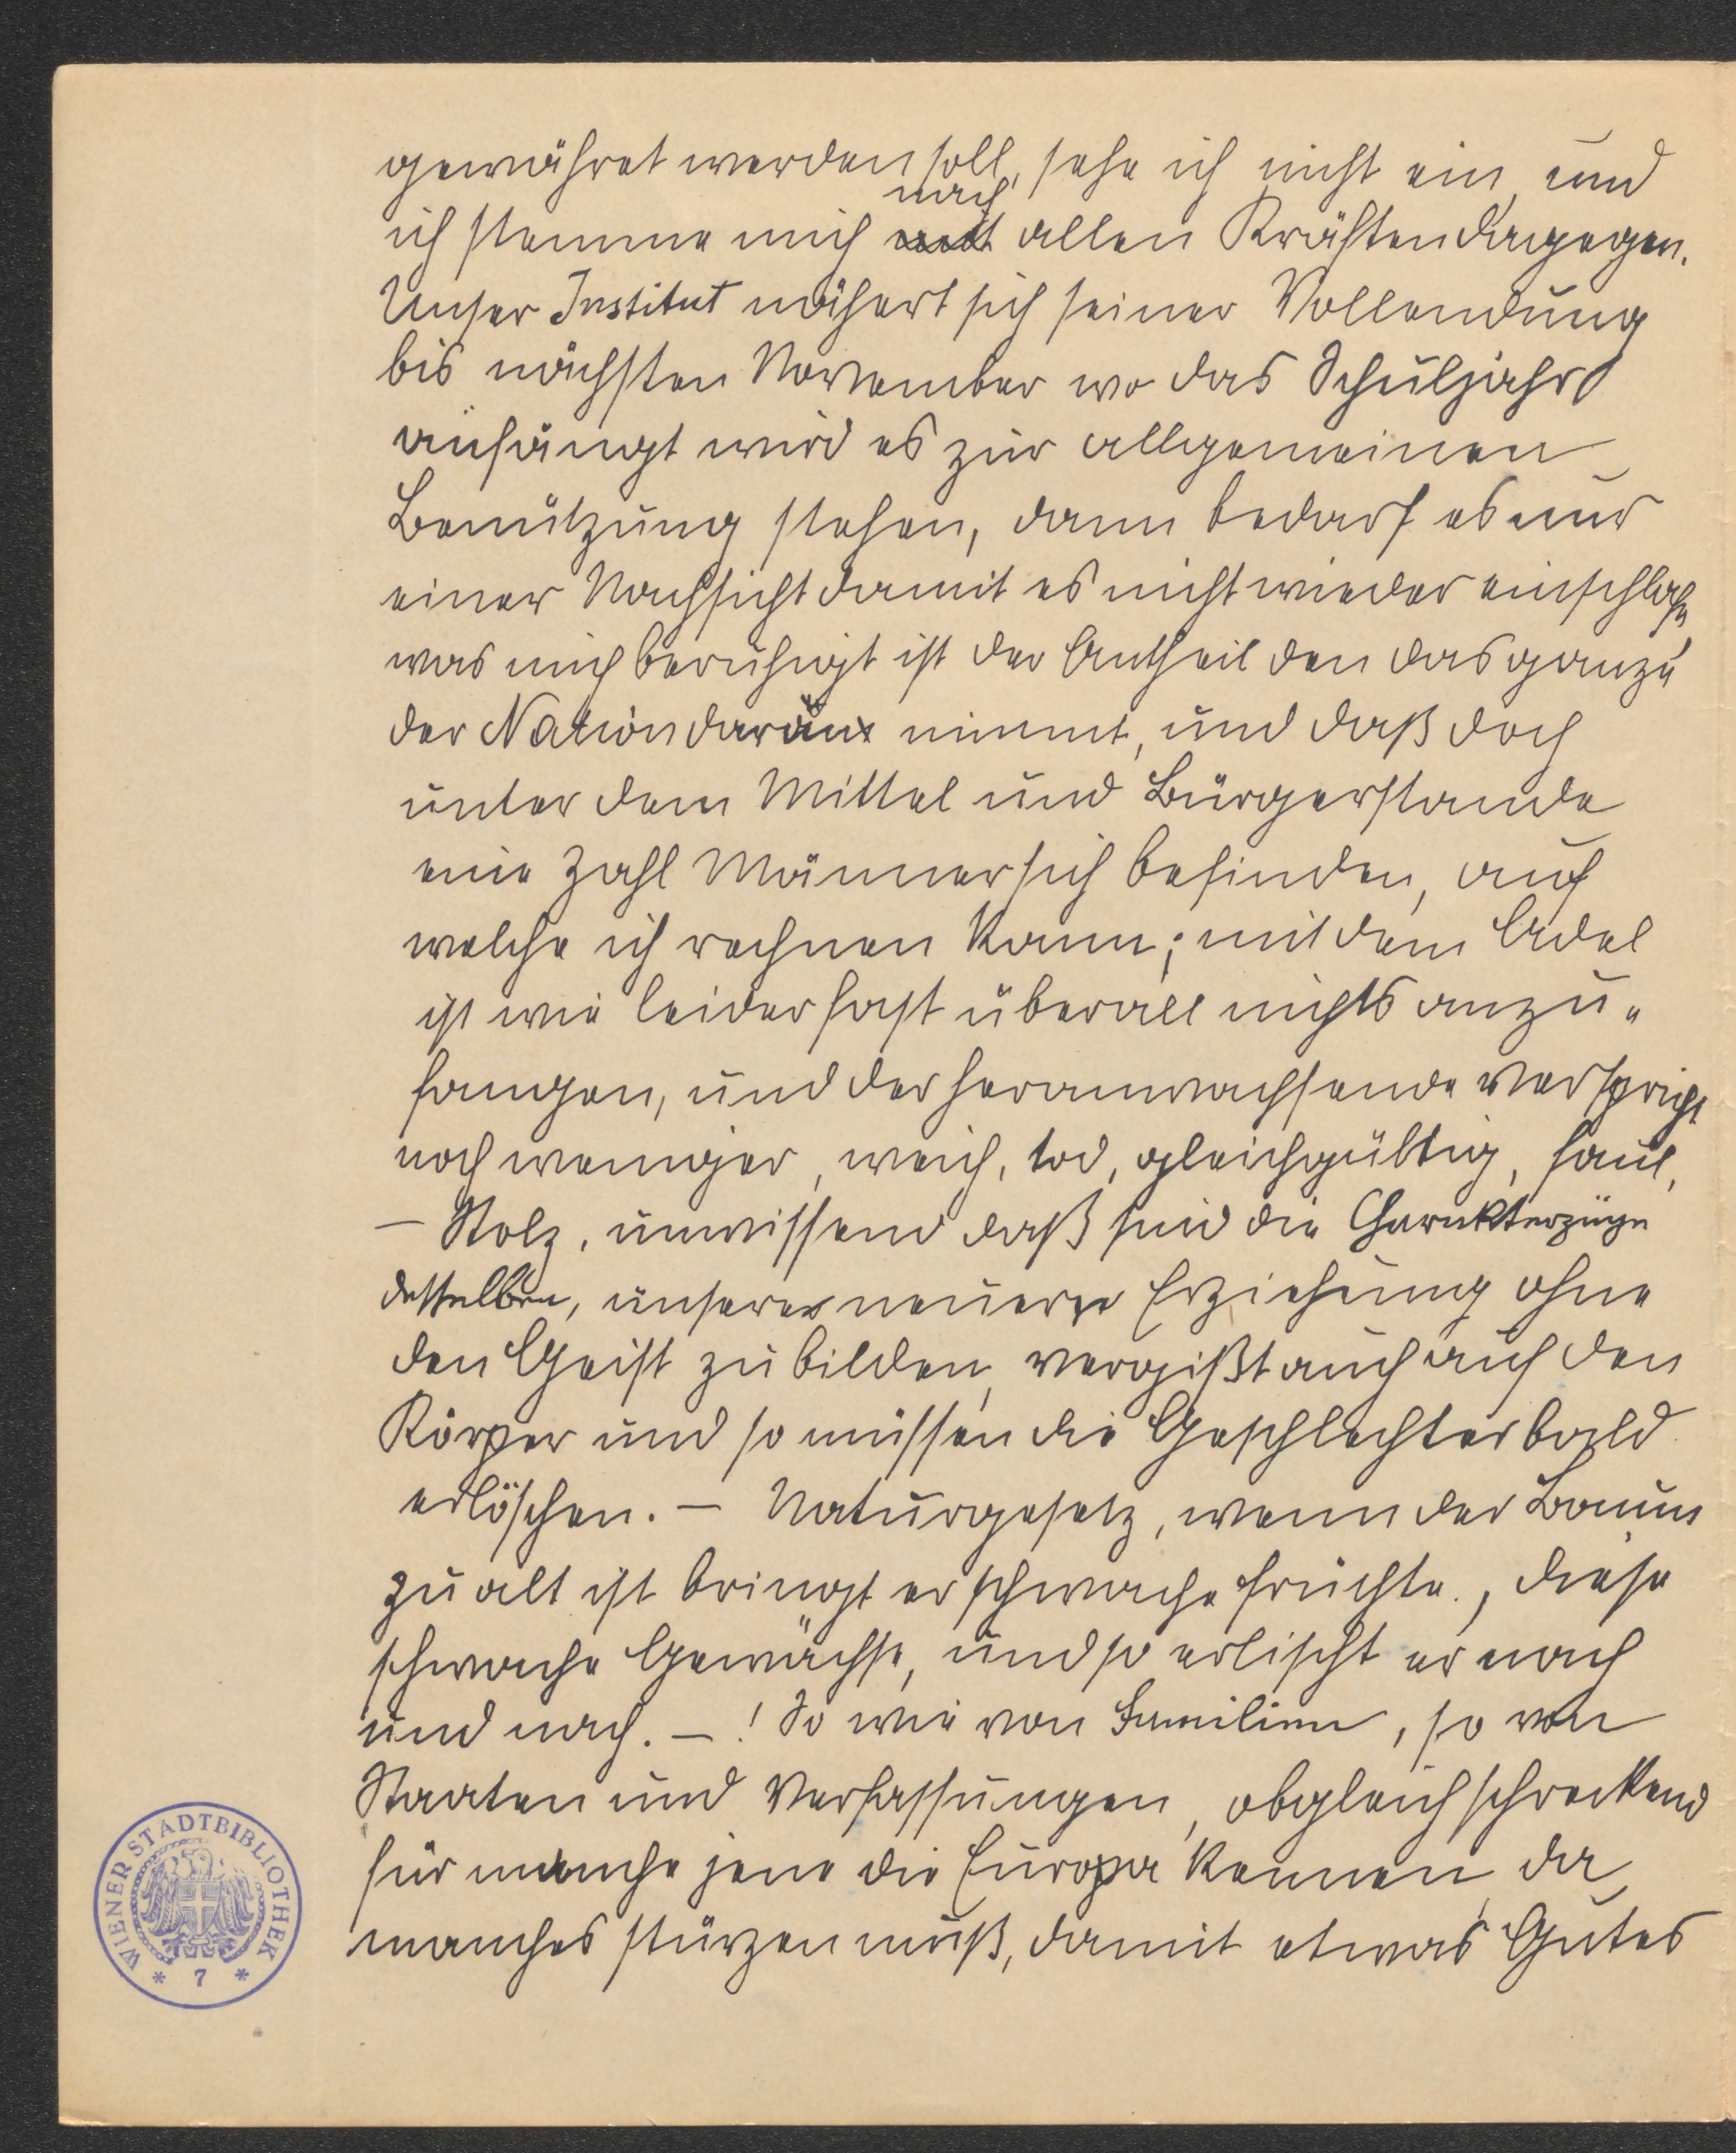 gewähret werden soll, sehe ich nicht ein, und
nach
ich stemme mich mit allen Kräften dagegen.
Unser Institut nähert sich seiner Vollendung
bis nächsten November wo das Schuljahr
anfängt wird es zur allgemeinen
Benützung stehen, dann bedarf es nur
einer Nachsicht damit es nicht wieder einschlafe,
was mich beruhigt ist der Antheil den das ganze
der Nation daran nimmt, und daß doch
unter dem Mittel und Bürgerstande
eine Zahl Männer sich befinden, auf
welche ich rechnen kann; mit dem Adel
ist wie leider fast überall nichts anzu-
fangen, und der heranwachsende verspricht
noch weniger, weich, tod, gleichgültig, faul,
– Stolz, unwissend daß sind die Charakterzüge
desselben, unsere neuere Erziehung ohne
den Geist zu bilden, vergißt auch auf den
Körper und so müssen die Geschlechter bald
erlöschen. – Naturgesetz, wenn der Baum
zu alt ist bringt er schwache Früchte, diese
schwache Gewächse, und so erlischt er nach
und nach. – ! So wie von Familien, so von
Staaten und Verfassungen, obgleich schreckend
für manche jene die Europa kennen, da
manches stürzen muß, damit etwas Gutes
WIENER STADTBIBLIOTHEK
* 7 *